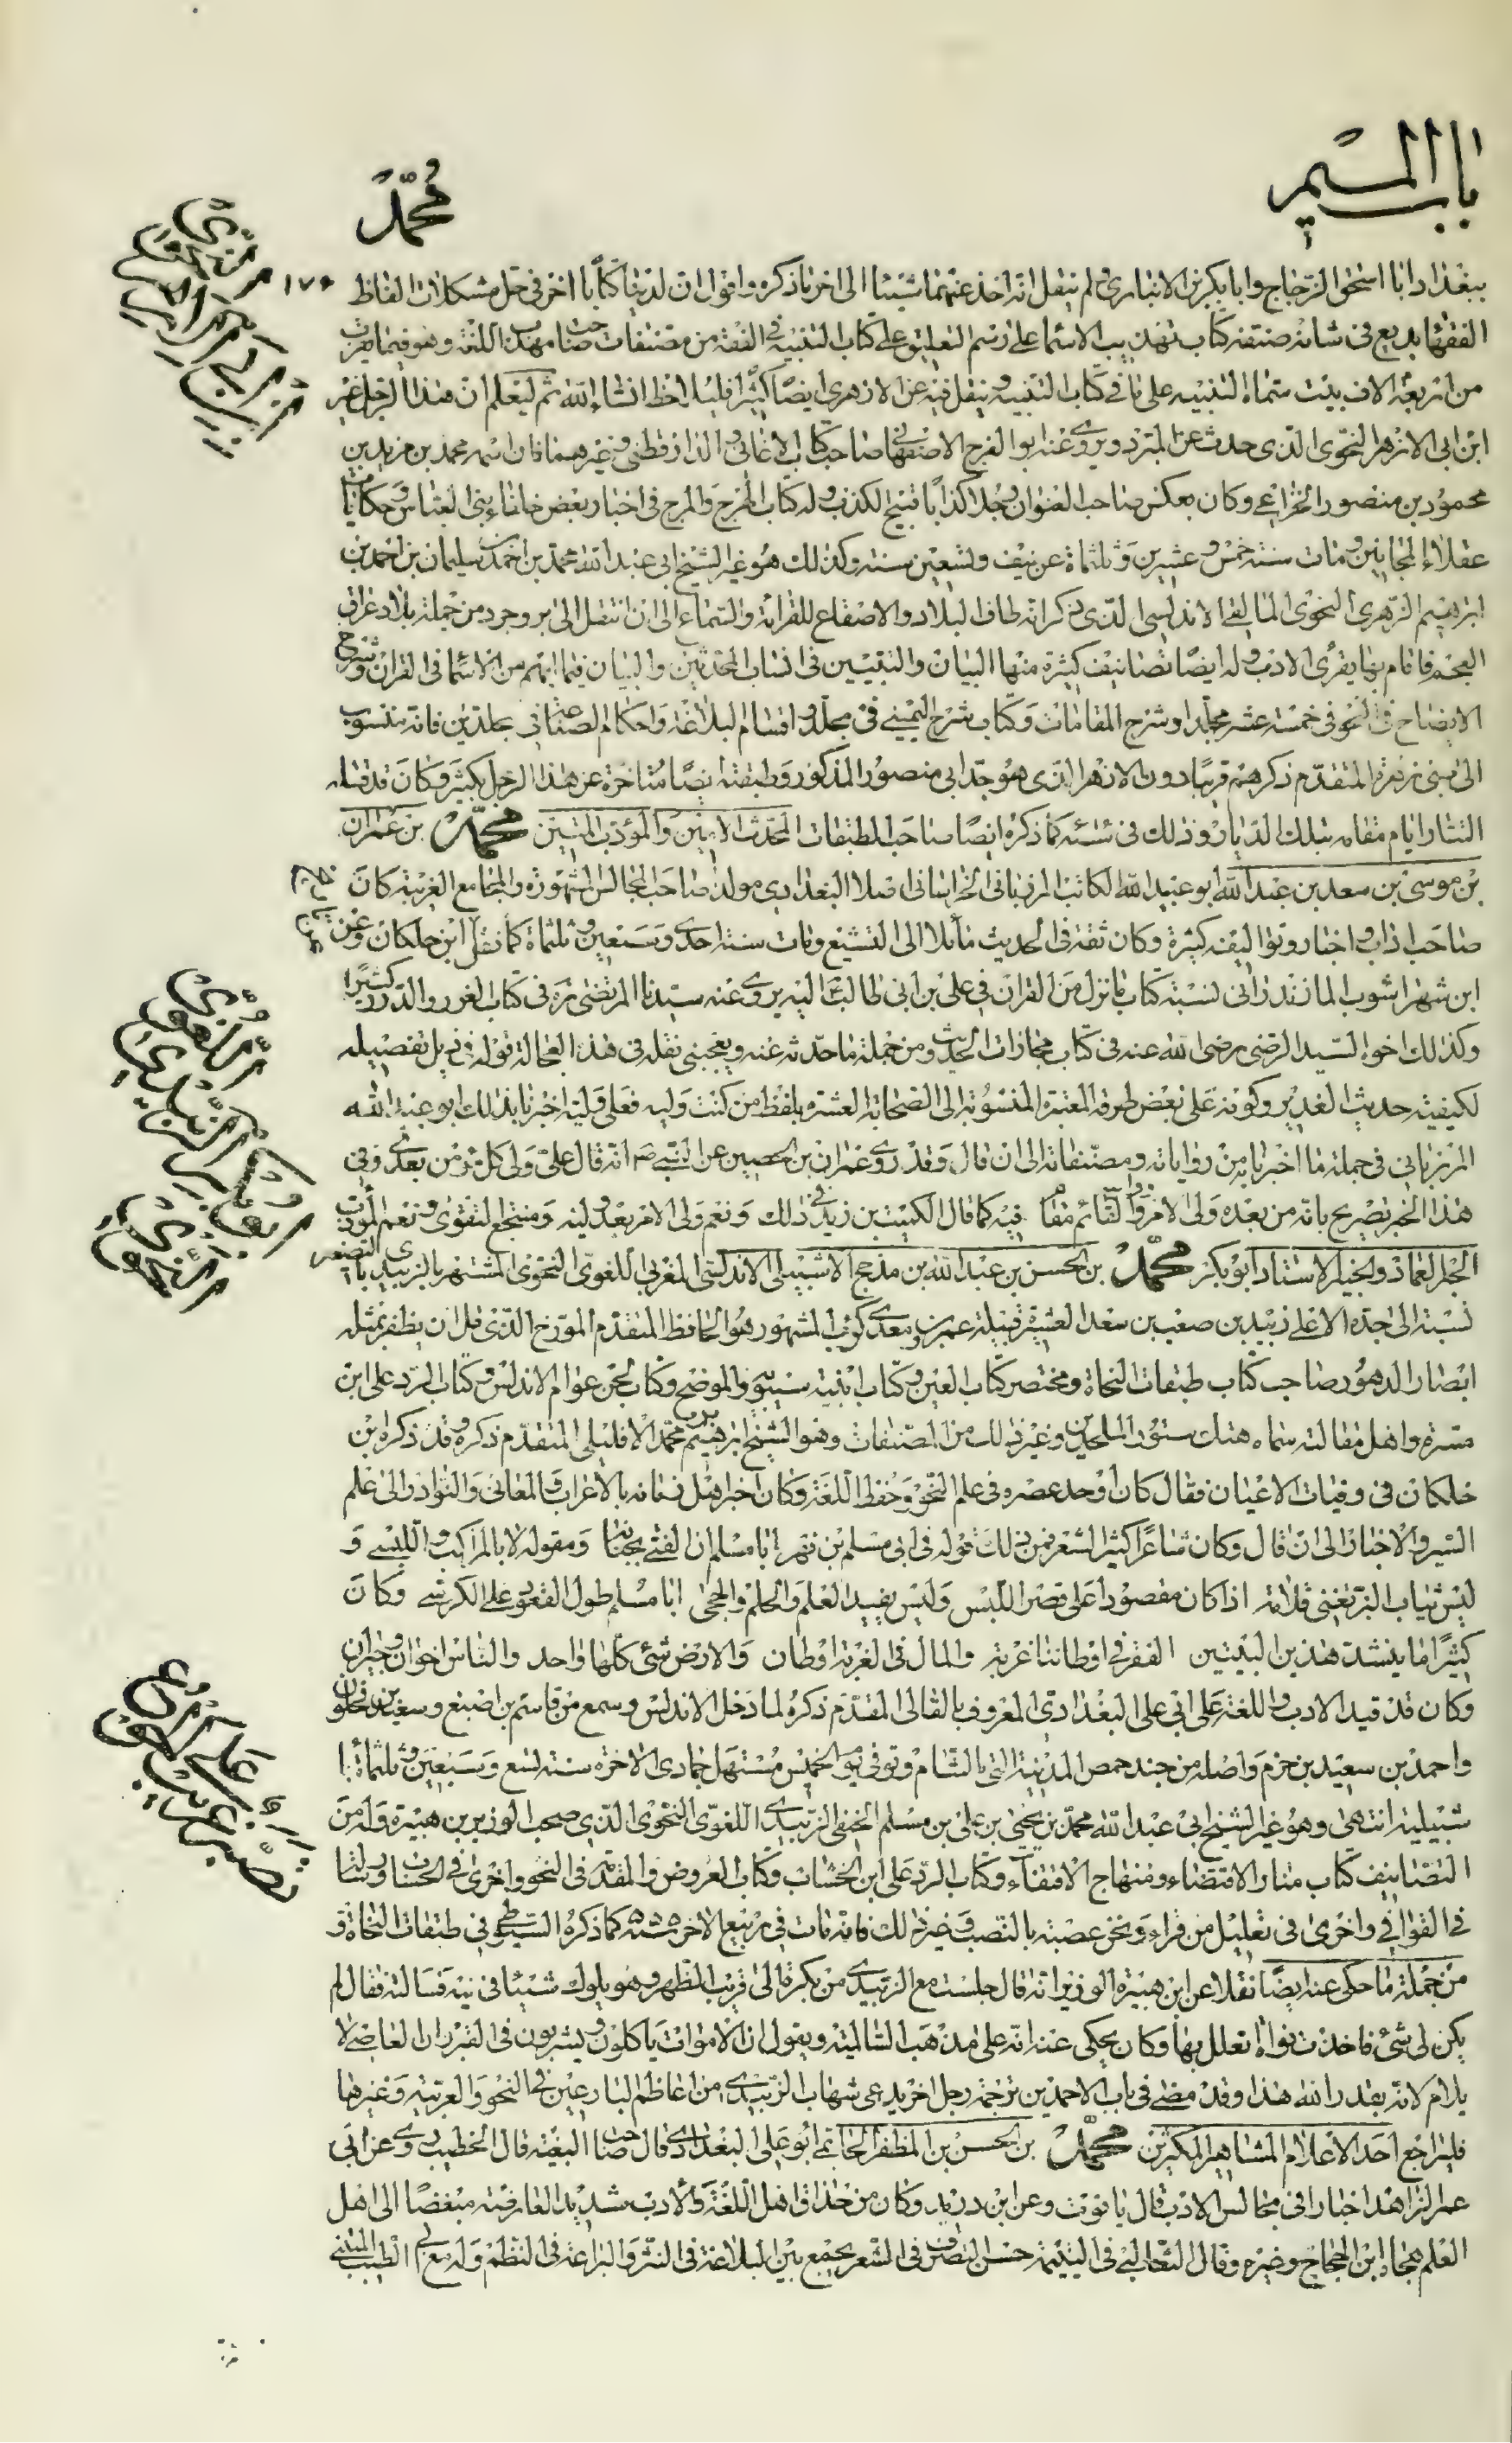 باب الميم
محمد
ببغداد ابا اسحق الزجاج وابا بكر بن الانباري ولم ينقل انه اخذ عنهما شيئا الى اخر ما ذكره واقول ان لدينا كتابا اخر في حل مشكلات الفاظ ١٧٠
الفقهاء بديع في شانه صنفه كتاب تهذيب الاسماء على رسم التعليق على كتاب التنبيه في الفقه من مصنفات صاحب مهذب اللغة وهو فيما يقرب
من اربعة الاف بيت سماه التنبيه على ما في كتاب التنبيه وينقل فيه عن الازهري ايضا كثيرا فليلاحظ انشاء الله ثم ليعلم ان هذا الرجل غير
ابن ابي الازهر النحوي الذي حدث عن المبرد ويروي عنه ابو الفرج الاصفهاني صاحب كتاب الاغاني والدارقطني وغيرهما فان اسمه محمد بن مزيد بن
محمود بن منصور الخزاعي وكان بعكس صاحب العنوان رجلا كذابا قبيح الكذب وله كتاب الهرج والمرج في اخبار بعض خلفاء بني العباس وحكايات
عقلاء المجانين ومات سنة خمس وعشرين وثلثمائة عن نيف وتسعين سنة وكذلك هو غير الشيخ ابي عبد الله محمد بن احمد بن سليمان بن احمد بن
ابرهيم الزهري النحوي المالقي الاندلسي الذي ذكر انه طاف البلاد والاصقاع للقراءة والسماع الى ان انتقل الى بروجرد من جملة بلاد عراق
العجم فاقام بها يقرئ الادب وله ايضا تصانيف كثيرة منها البيان والتبيين في انساب المحدثين والبيان فيما ابهم من الاسماء في القران وشرح
الايضاح في النحو في خمسة عشر مجلدا وشرح المقامات وكتاب شرح اليميني في مجلد واقسام البلاغة واحكام الصناعة في مجلدين فانه منسوب
الى بني زهرة المتقدم ذكرهم قريبا دون الازهر الذي هو جد ابي منصور المذكور وطبقته ايضا متاخرة عن هذا الرجل بكثير وكان قد قتله
التتار ايام مقامه بتلك الديار وذلك في سنة كما ذكره ايضا صاحب الطبقات المحدث الامين والمؤدب المتين محمد بن عمران
بن موسى بن سعد بن عبد الله ابو عبيد الله الكاتب المرزباني الخراساني اصلا البغدادي مولدا صاحب المجالس المشهورة والمجامع الغريبة كان
صاحب اداب واخبار وتواليفه كثيرة وكان ثقة في الحديث مائلا الى التشيع ومات سنة احدى وسبعين وثلثمائة كما نقل ابن خلكان وعن
ابن شهراشوب المازندراني نسبة كتاب ما نزل من القران في علي بن ابي طالب اليه يروي عنه سيدنا المرتضى ره في كتاب الغرر والدرر كثيرا
وكذلك اخوه السيد الرضي رضي الله عنه في كتاب مجازات الحديث ومن جملة ما حدثه عنه ويعجبني نقله في هذه العجالة قوله في ذيل تفصيله
لكيفية حديث الغدير وكونه على بعض طرقه المعتبرة المنسوبة الى الصحابة العشرة بلفظ من كنت وليه فعلي وليه اخبرنا بذلك ابو عبيد الله
المرزباني في جملة ما اخبرنا به من رواياته ومصنفاته الى ان قال وقد روى عمران بن الحصين عن النبي ص انه قال علي ولي كل مؤمن بعدي وفي
هذا الخبر تصريح بانه من بعده ولي الامر والقائم مقامه فيه كما قال الكميت بن زيد في ذلك ونعم ولي الامر بعد وليه ومنتجع التقوى ونعم المؤدب
الحبر العماد والخبير الاستاد ابو بكر محمد بن الحسن بن عبد الله بن مذحج الاشبيلي الاندلسي المغربي اللغوي النحوي المشتهر بالزبيدي بالتصغير
نسبة الى جده الاعلى زبيد بن صعب بن سعد العشيرة قبيلة عمرو بن معديكرب المشهور هو الحافظ المتقدم المورخ الذي قل ان يظفر بمثله
ابصار الدهور صاحب كتاب طبقات النحاة ومختصر كتاب العين وكتاب ابنية سيبويه والموضح وكتاب لحن عوام الاندلس وكتاب الرد على ابن
مسرة واهل مقالته سماه هتك ستور الملحدين وغير ذلك من المصنفات وهو الشيخ ابرهيم بن محمد الافليلي المتقدم ذكره وقد ذكره ابن
خلكان في وفيات الاعيان فقال كان اوحد عصره في علم النحو وحفظ اللغة وكان اخبر اهل زمانه بالاعراب والمعاني والنوادر الى علم
السير والاخبار الى ان قال وكان شاعرا كثير الشعر فمن ذلك قوله في ابي مسلم بن فهر ابا مسلم ان الفتى بجنانه ومقوله لا بالمراكب واللبس و
ليس ثياب المرء تغني قلامة اذا كان مقصورا على قصر اللبس وليس يفيد العلم والحلم والحجى ابا مسلم طول القعود على الكرسي وكان
كثيرا ما ينشد هذين البيتين الفقر في اوطاننا غربة والمال في الغربة اوطان والارض شيء كلها واحد والناس اخوان وجيران
وكان قد قيد الادب واللغة على ابي علي البغدادي المعروف بالقالي المقدم ذكره لما دخل الاندلس وسمع من قاسم بن اصبغ وسعيد بن فحلون
واحمد بن سعيد بن حزم واصله من جند حمص المدينة التي بالشام وتوفي يوم الخميس مستهل جمادى الاخرة سنة تسع وسبعين وثلثمائة با
شبيلية انتهى وهو غير الشيخ ابي عبد الله محمد بن يحيى بن علي بن مسلم الحنفي الزبيدي اللغوي النحوي الذي صحب الوزير بن هبيرة وله من
التصانيف كتاب منار الاقتضاء ومنهاج الاقتفاء وكتاب الرد على ابن الخشاب وكتاب العروض والمقدمة في النحو واخرى في الحساب ورسالة
في القوافي واخرى في تعليل من قرأ ونحن عصبة بالنصب وغير ذلك فانه مات في ربيع الاخر سنة ٥٥٥ كما ذكره السيوطي في طبقات النحاة و
من جملة ما حكى عنه ايضا نقلا عن ابن هبيرة الوزير انه قال جلست مع الزبيدي من بكرة الى قريب الظهر وهو يلوك شيئا في فيه فسالته فقال لم
يكن لي شيء فاخذت نواة اتعلل بها وكان يحكى عنه انه على مذهب السالمية ويقول ان الاموات ياكلون ويشربون في القبر وان العاصي لا
يلام لانه بقدر الله هذا وقد مضى في باب الاحمدين ترجمة رجل اخر يدعى شهاب الزبيدي من اعاظم البارعين في النحو والعربية وغيرها
فليراجع احد الاعلام المشاهير المكثرين محمد بن الحسن بن المظفر الحاتمي ابو علي البغدادي قال صاحب البغية قال الخطيب روى عن ابي
عمر الزاهد اخبارا في مجالس الادب قال ياقوت وعن ابن دريد وكان من حذاق اهل اللغة والادب شديد العارضة مبغضا الى اهل
العلم هجاه ابن الحجاج وغيره وقال الثعالبي في اليتيمة حسن التصرف في الشعر يجمع بين البلاغة في النثر والبراعة في النظم وله مع ابي الطيب المتنبي